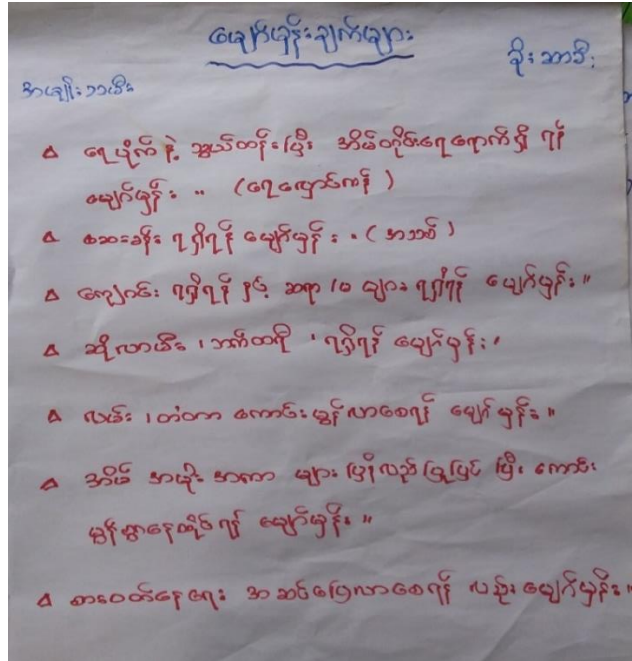 မျှော်မှန်းချက်များ
ခိုးဘာဒီး
အမျိုးသမီး
Δ ရေပိုက်နဲ့ သွယ်တန်းပြီး အိမ်တိုင်းရေရောက်ရှိ ရန်
မျှော်မှန်း ။ (ရေလှောင်ကန်)
Δ ဆေးခန်း ရရှိရန် မျှော်မှန်း ။ (အသစ်)
Δ ကျောင်း ရရှိရန် နှင့် ဆရာ/မ များ ရရှိရန် မျှော်မှန်း ။
Δ ဆိုလာမီး ၊ ဘက်ထရီ ၊ ရရှိရန် မျှော်မှန်း ၊
Δ လမ်း ၊ တံတာ ကောင်းမွန်လာစေရန် မျှော်မှန်း ။
Δ အိမ် အမိုး အကာ များ ပြန်လည် ပြုပြင် ပြီး ကောင်း
မွန်စွာနေထိုင်ရန် မျှော်မှန်း ။
Δ စားဝတ်နေရေး အဆင်ပြေလာစေရန် လည်း မျှော်မှန်း ။